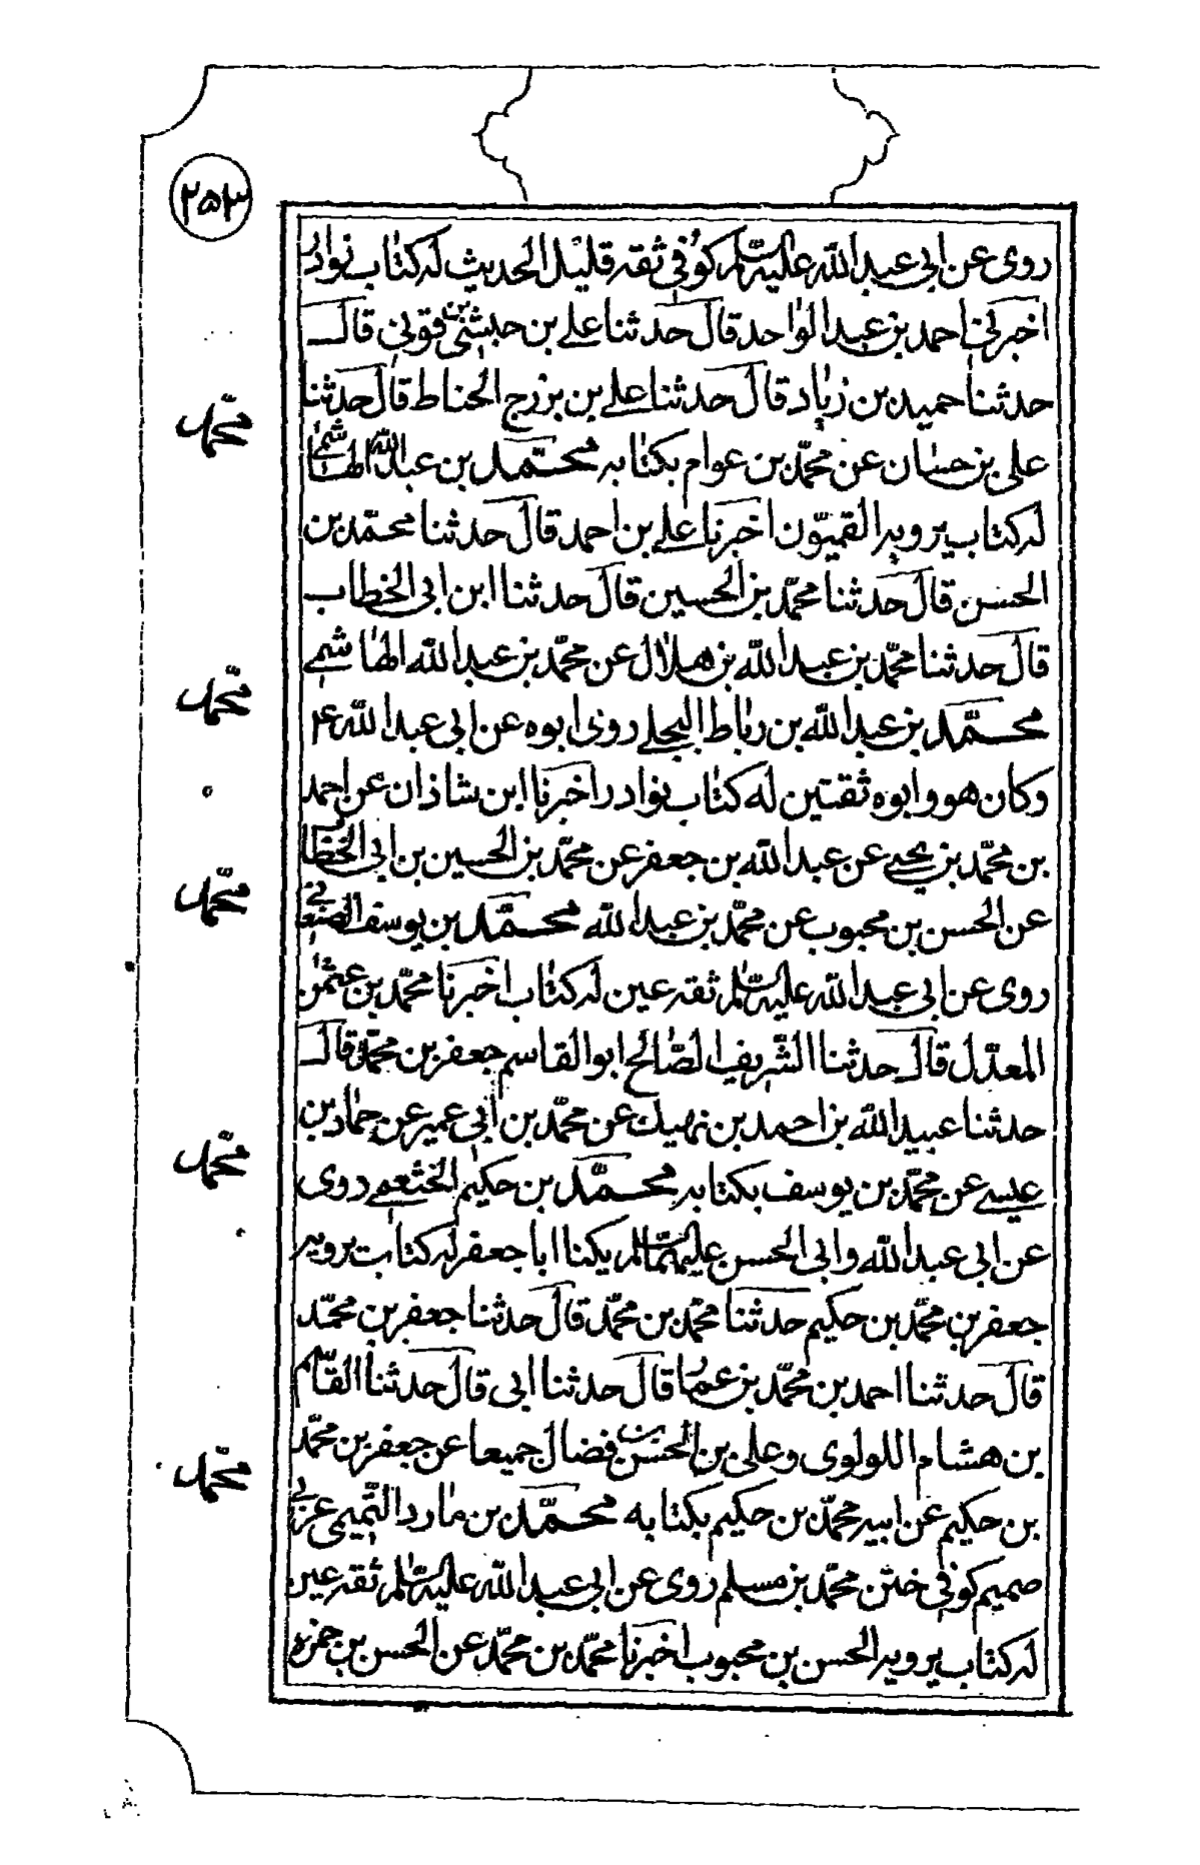 ٢٥٣
روى عن ابى عبد الله عليه السّلم كوفى ثقه قليل الحديث له كتاب نوادر
اخبرنى احمد بن عبد الواحد قال حدثنا على بن حبشى بن قونى قال
حدثنا حميد بن زياد قال حدثنا على بن بزرج الحناط قال حدثنا
على بن حسان عن محمّد بن عوام بكتابه محمّد بن عبد الله الهاشمى
له كتاب يرويه القميّون اخبرنا على بن احمد قال حدثنا محمّد بن
الحسن قال حدثنا محمّد بن الحسين قال حدثنا ابن ابى الخطاب
قال حدثنا محمّد بن عبد الله بن هلال عن محمّد بن عبد الله الهاشمى
محمّد بن عبد الله بن رباط البجلى روى ابوه عن ابى عبد الله ع
وكان هو وابوه ثقتين له كتاب نوادر اخبرنا ابن شاذان عن احمد
بن محمّد بن يحيى عن عبد الله بن جعفر عن محمّد بن الحسين بن ابى الخطاب
عن الحسن بن محبوب عن محمّد بن عبد الله محمّد بن يوسف الصنعانى
روى عن ابى عبد الله عليه السّلم ثقه عين له كتاب اخبرنا محمّد بن عثمن
المعدّل قال حدثنا الشّريف الصّالح ابو القاسم جعفر بن محمّد قال
حدثنا عبيد الله بن احمد بن نهيك عن محمّد بن ابى عمير عن حماد بن
عيسى عن محمّد بن يوسف بكتابه محمّد بن حكيم الخثعمى روى
عن ابى عبد الله وابى الحسن عليهما السّلم يكنا ابا جعفر له كتاب يرويه
جعفر بن محمّد بن حكيم حدثنا محمّد بن محمّد قال حدثنا جعفر بن محمّد
قال حدثنا احمد بن محمّد بن عمار قال حدثنا ابى قال حدثنا القاسم
بن هشام اللولوى وعلى بن الحسن بن فضال جميعا عن جعفر بن محمّد
بن حكيم عن ابيه محمّد بن حكيم بكتابه محمّد بن مارد التّميمى عربى
صميم كوفى ختن محمّد بن مسلم روى عن ابى عبد الله عليه السّلم ثقه عين
له كتاب يرويه الحسن بن محبوب اخبرنا محمّد بن محمّد عن الحسن بن حمزه
محمّد
محمّد
محمّد
محمّد
محمّد